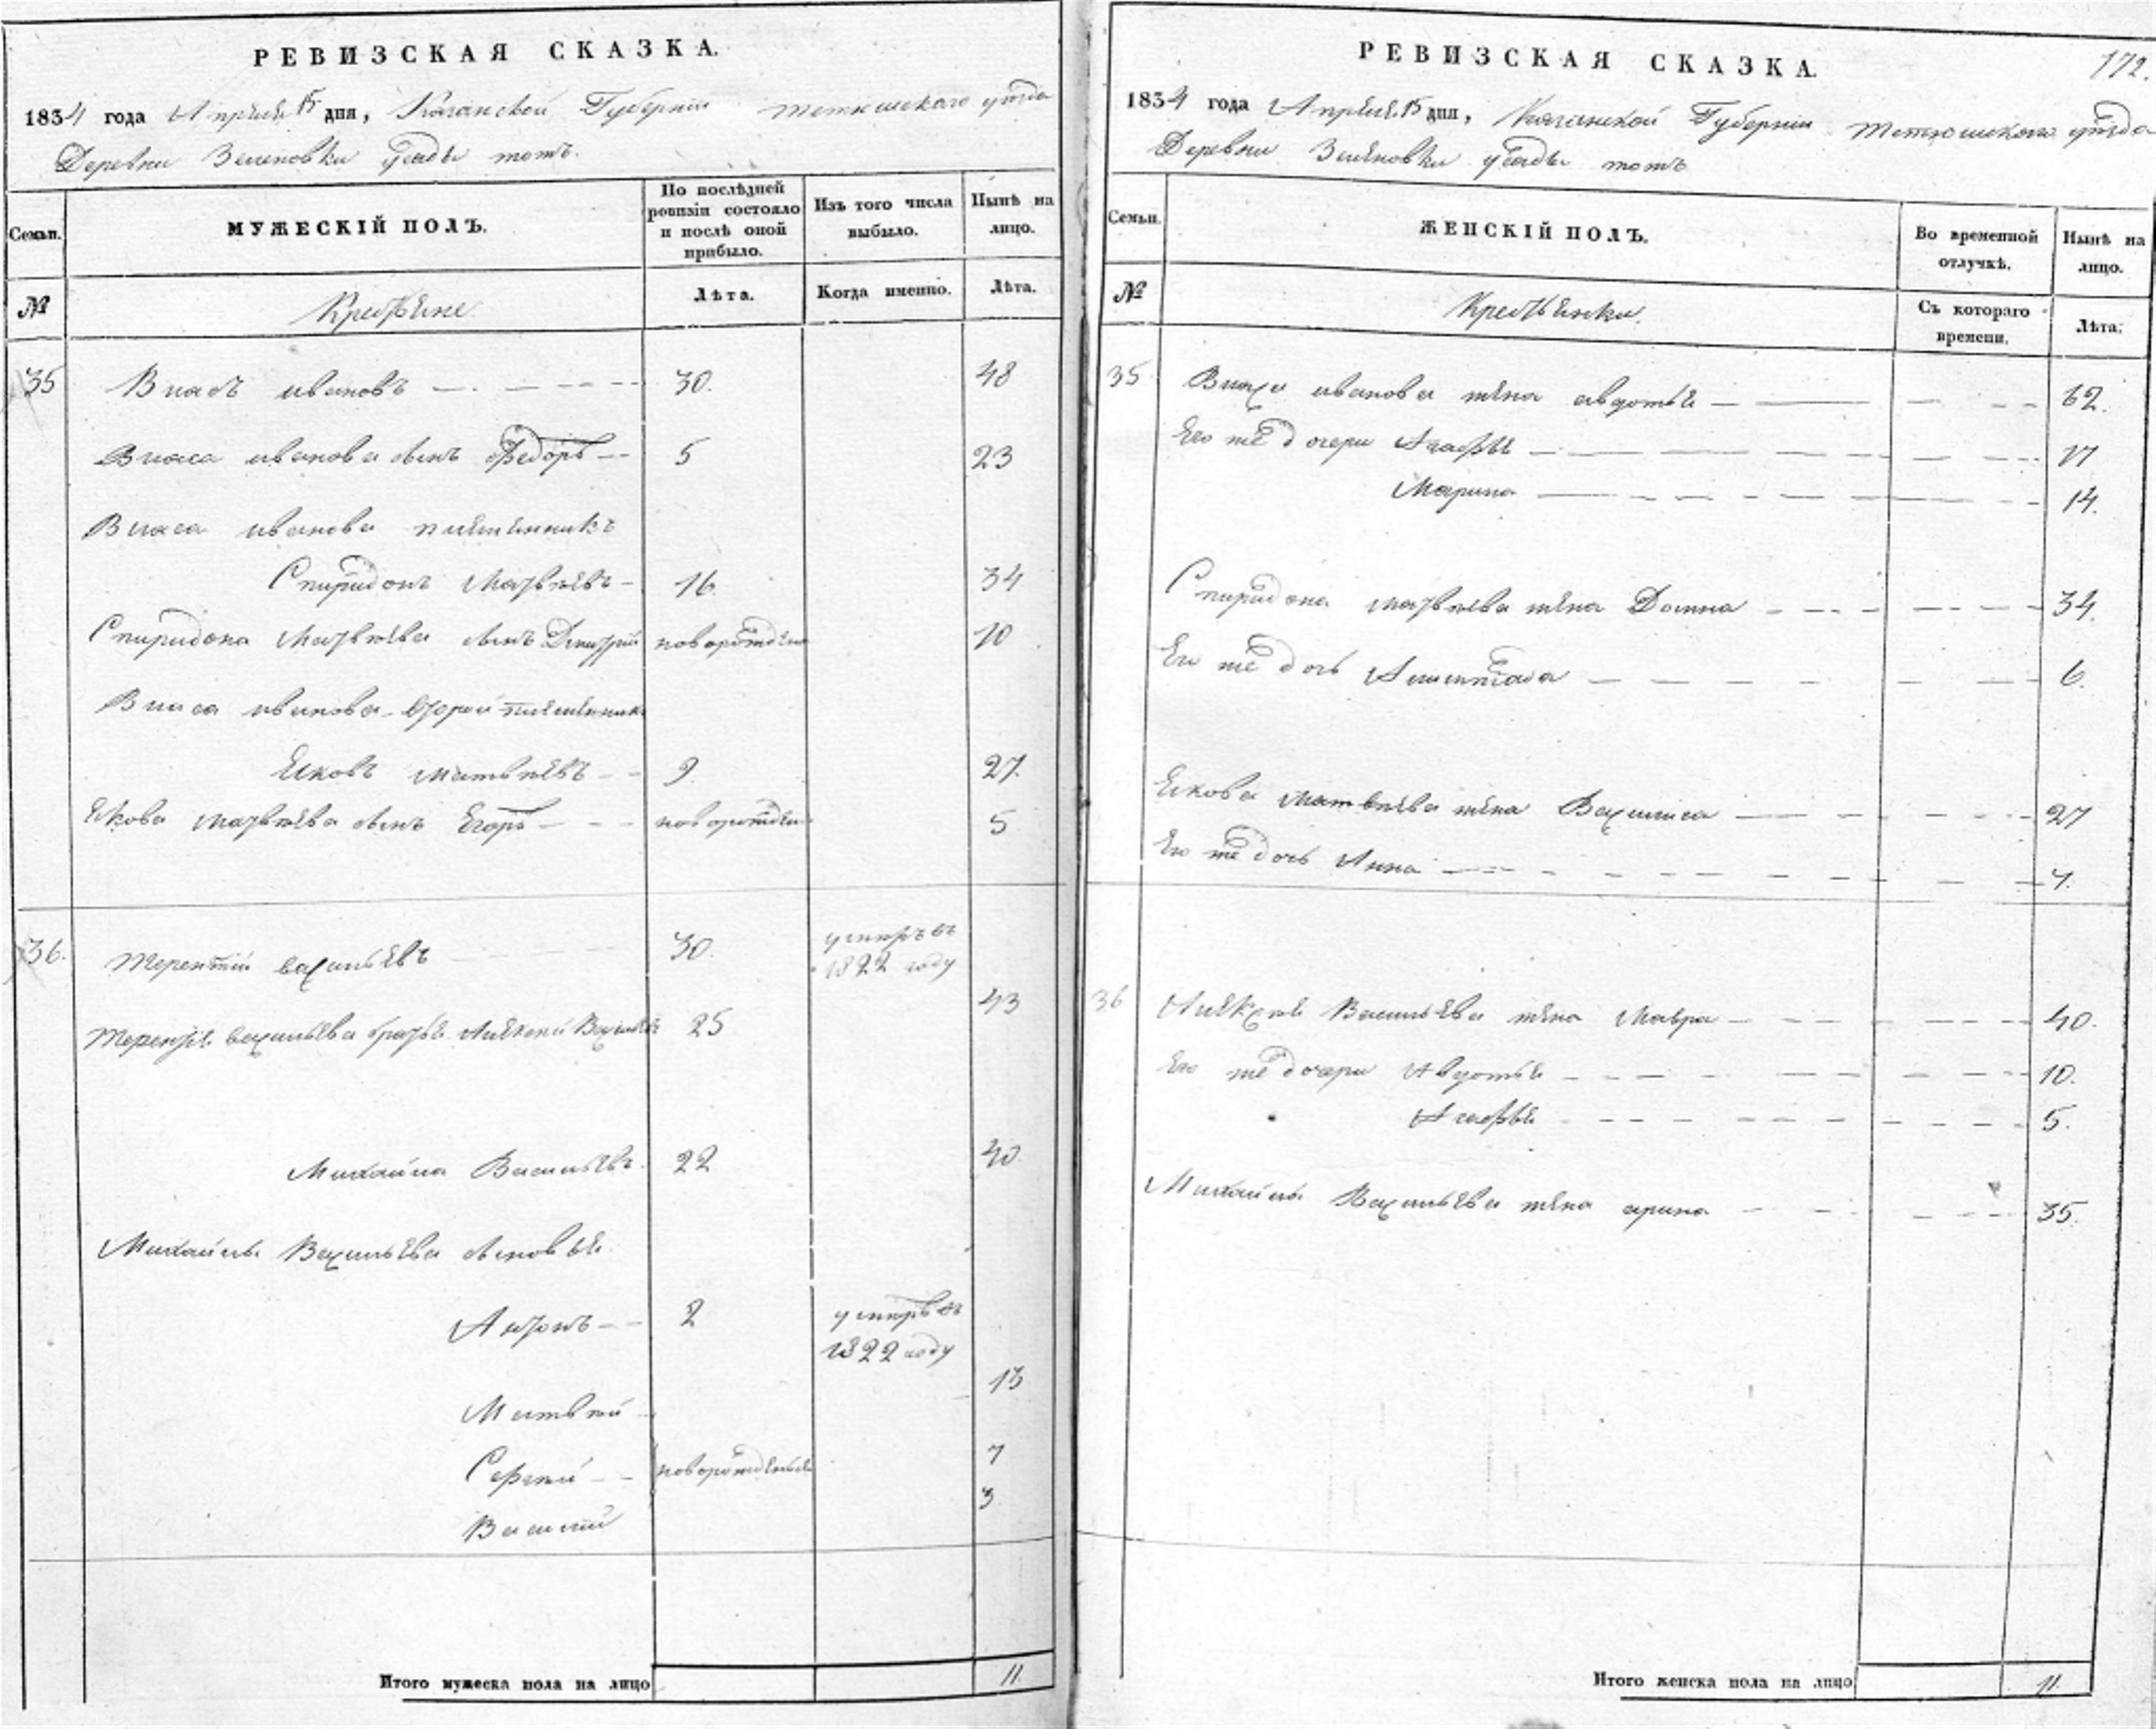 РЕВИЗСКАЯ СКАЗКА.
1834 года Апреля 15 дня, Казанской Губернии тетюшского уезда
Деревни Зеленовки
МУЖЕСКІЙ ПОЛЪ.
Семьи.
По послѣдней ревизіи состояло и послѣ оной прибыло.
Изъ того числа выбыло.
Нынѣ на лицо.
№
Крестьяне
Лѣта.
Когда именно.
Лѣта.
35 Власъ ивановъ 30. 48
Власа иванова сынъ Федоръ 5 23
Власа иванова племенникъ
Спиридонъ Матвѣевъ 16. 34
Спиридона Матвѣева сынъ Дмитрий новорожден 10
Власа иванова второй племенник
Яковъ матвѣевъ 9. 27.
Якова матвѣева сынъ Егоръ новорожден 5
36. терентий васильевъ 30. умеръ въ
1822 году
терентья васильева братья Алексей Васильев 25 43
Михайла Васильевъ 22 40.
Михайлы Васильева сыновья
Антонъ 2 умеръ въ
1822 году
Матвей 13
Сергей новорожденные 7
Василий 3
Итого мужеска пола на лицо 11.
РЕВИЗСКАЯ СКАЗКА.
172.
1834 года Апреля 15 дня, Казанской Губернии тетюшского уезда
Деревни Зеленовки
Семьи.
ЖЕНСКІЙ ПОЛЪ.
Во временной отлучкѣ.
Нынѣ на лицо.
№
Крестьянки.
Съ котораго времени.
Лѣта.
35 Власа иванова жена авдотья 62.
Его же дочери Агафья 17
Марина 14.
Спиридона матвѣева жена Домна 34.
Его же дочь 6.
Якова матвѣева жена Василиса 27
Его же дочь Анна 7.
36 Алексея Васильева жена Мавра 40.
Его же дочери Авдотья 10.
Агафья 5.
Михайлы Васильева жена арина 35.
Итого женска пола на лицо 11.